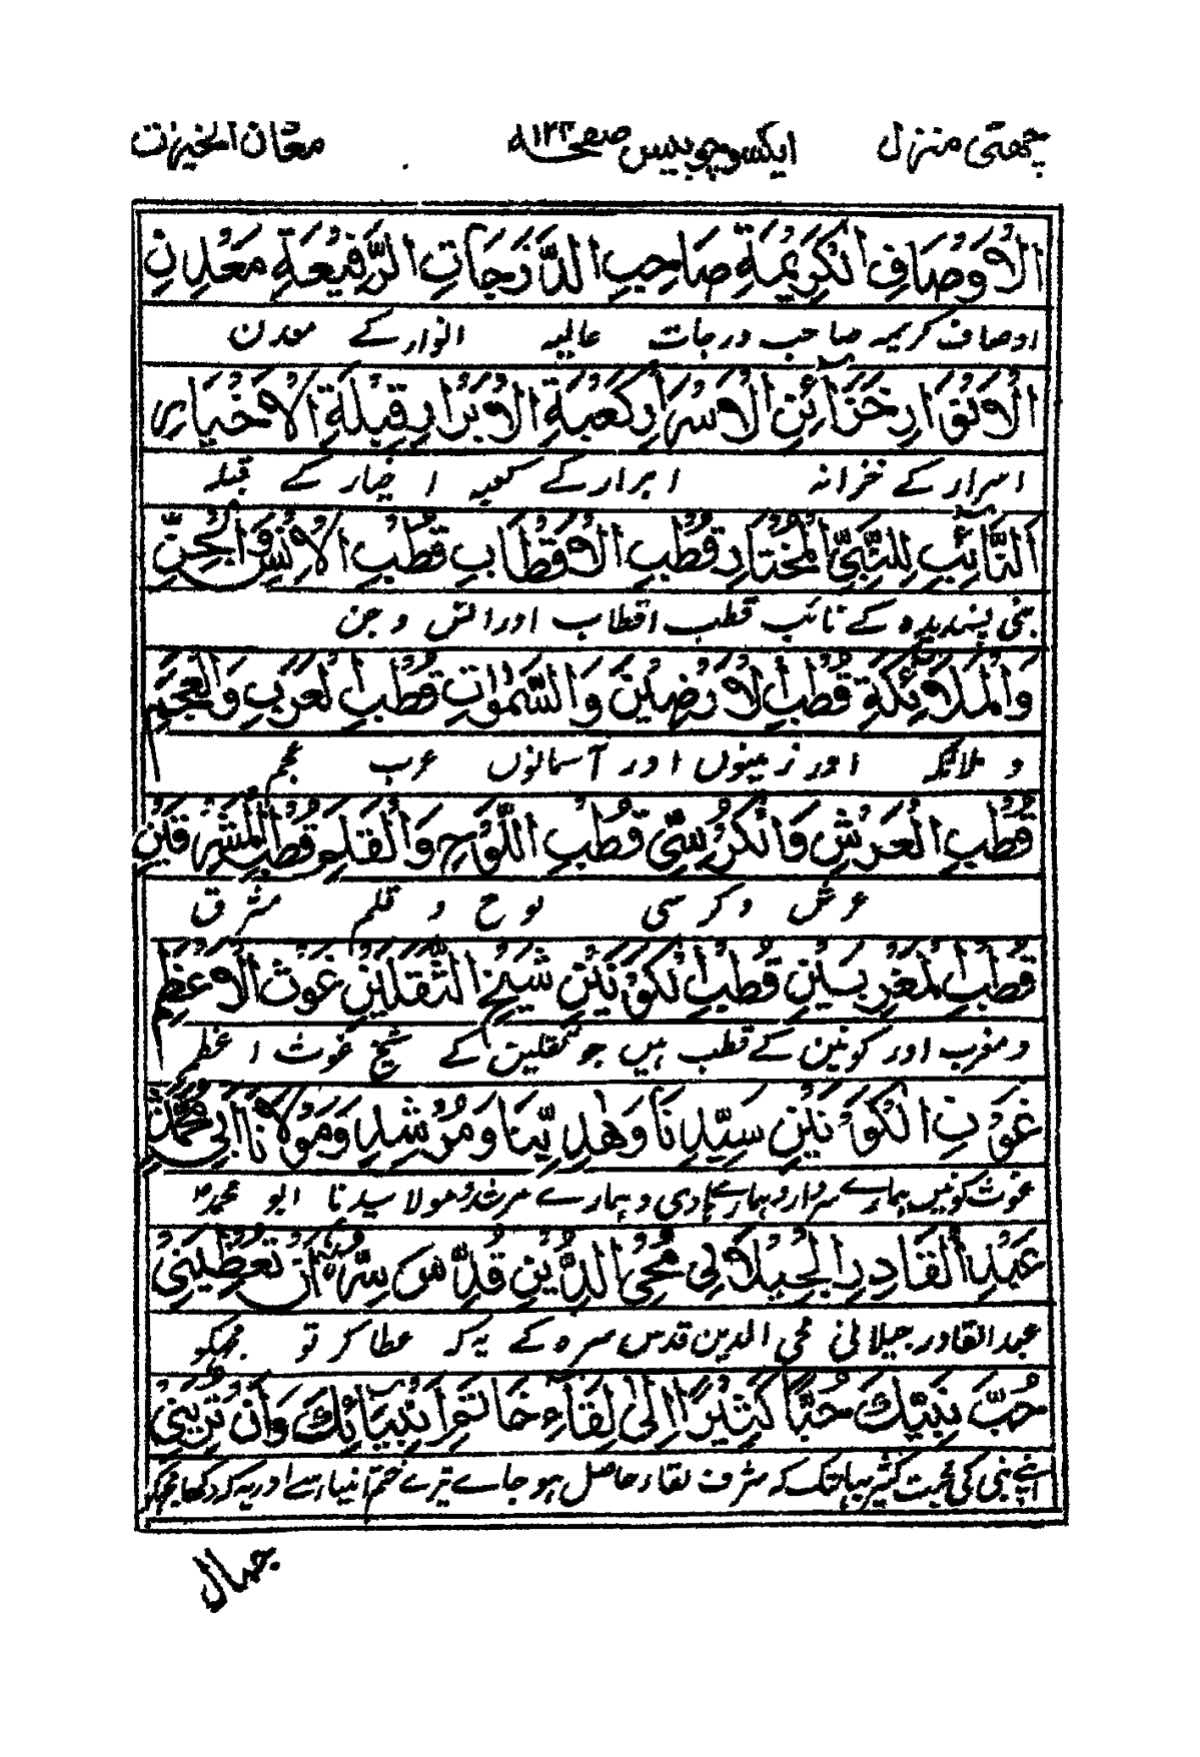 چھٹی منزل ایکسو چوبیس صفحہ ۱۲۴ معان الخیرات
الْاَوْصَافِ الْكَرِيْمَةِ صَاحِبِ الدَّرَجَاتِ الرَّفِيْعَةِ مَعْدِنِ
اوصاف کریمہ صاحب درجات عالیہ انوار کے معدن
الْاَنْوَارِ خَزَائِنِ الْاَسْرَارِ كَعْبَةِ الْاَبْرَارِ قِبْلَةِ الْاَخْيَارِ
اسرار کے خزانہ ابرار کے کعبہ اخیار کے قبلہ
اَلنَّائِبِ لِلنَّبِيِّ الْمُخْتَارِ قُطْبِ الْاَقْطَابِ قُطْبِ الْاِنْسِ وَالْجِنِّ
نبی پسندیدہ کے نائب قطب اقطاب اور انس و جن
وَالْمَلَائِكَةِ قُطْبِ الْاَرْضِيْنَ وَالسَّمٰوَاتِ قُطْبِ الْعَرَبِ وَالْعَجَمِ
و ملائکہ اور زمینوں اور آسمانوں عرب عجم
قُطْبِ الْعَرْشِ وَالْكُرْسِيِّ قُطْبِ اللَّوْحِ وَالْقَلَمِ قُطْبِ الْمَشْرِقَيْنِ
عرش و کرسی لوح و قلم مشرق
قُطْبِ الْمَغْرِبَيْنِ قُطْبِ الْكَوْنَيْنِ شَيْخِ الثَّقَلَيْنِ غَوْثِ الْاَعْظَمِ
و مغرب اور کونین کے قطب ہیں جو ثقلین کے شیخ غوث اعظم
غَوْثِ الْكَوْنَيْنِ سَيِّدِنَا وَهَادِيْنَا وَمُرْشِدِ وَمَوْلَانَا اَبِيْ مُحَمَّدٍ
غوث کونین ہمارے سردار و ہمارے ہادی و ہمارے مرشد و مولا سیدنا ابو محمد
عَبْدِ الْقَادِرِ الْجِيْلَانِيْ مُحْيِ الدِّيْنِ قُدِّسَ سِرُّهٗ اَنْ تُعْطِيَنِيْ
عبدالقادر جیلانی محی الدین قدس سرہ کے یہ کہ عطا کر تو مجھکو
حُبَّ نَبِيِّكَ حُبًّا كَثِيْرًا اِلٰى لِقَآءِ خَاتَمِ اَنْبِيَائِكَ وَاَنْ تُرِيَنِيْ
اپنے نبی کی محبت کثیر یہاں تک کہ مشرف لقاء حاصل ہو جاے تیرے ختم انبیا سے اور یہ کہ دکھا مجھکو
جمال